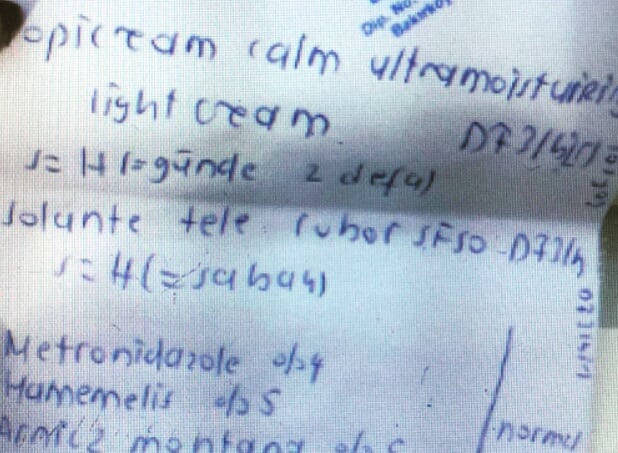 Dip. No.
Bakırköy
opicream calm ultramoisturiei
light cream
s= H 1=günde 2 defa)
solante tele rubor SF50
s= H(=sabah)
Metronidazole %4
Hamemelis %5
Arnica montana %
normal